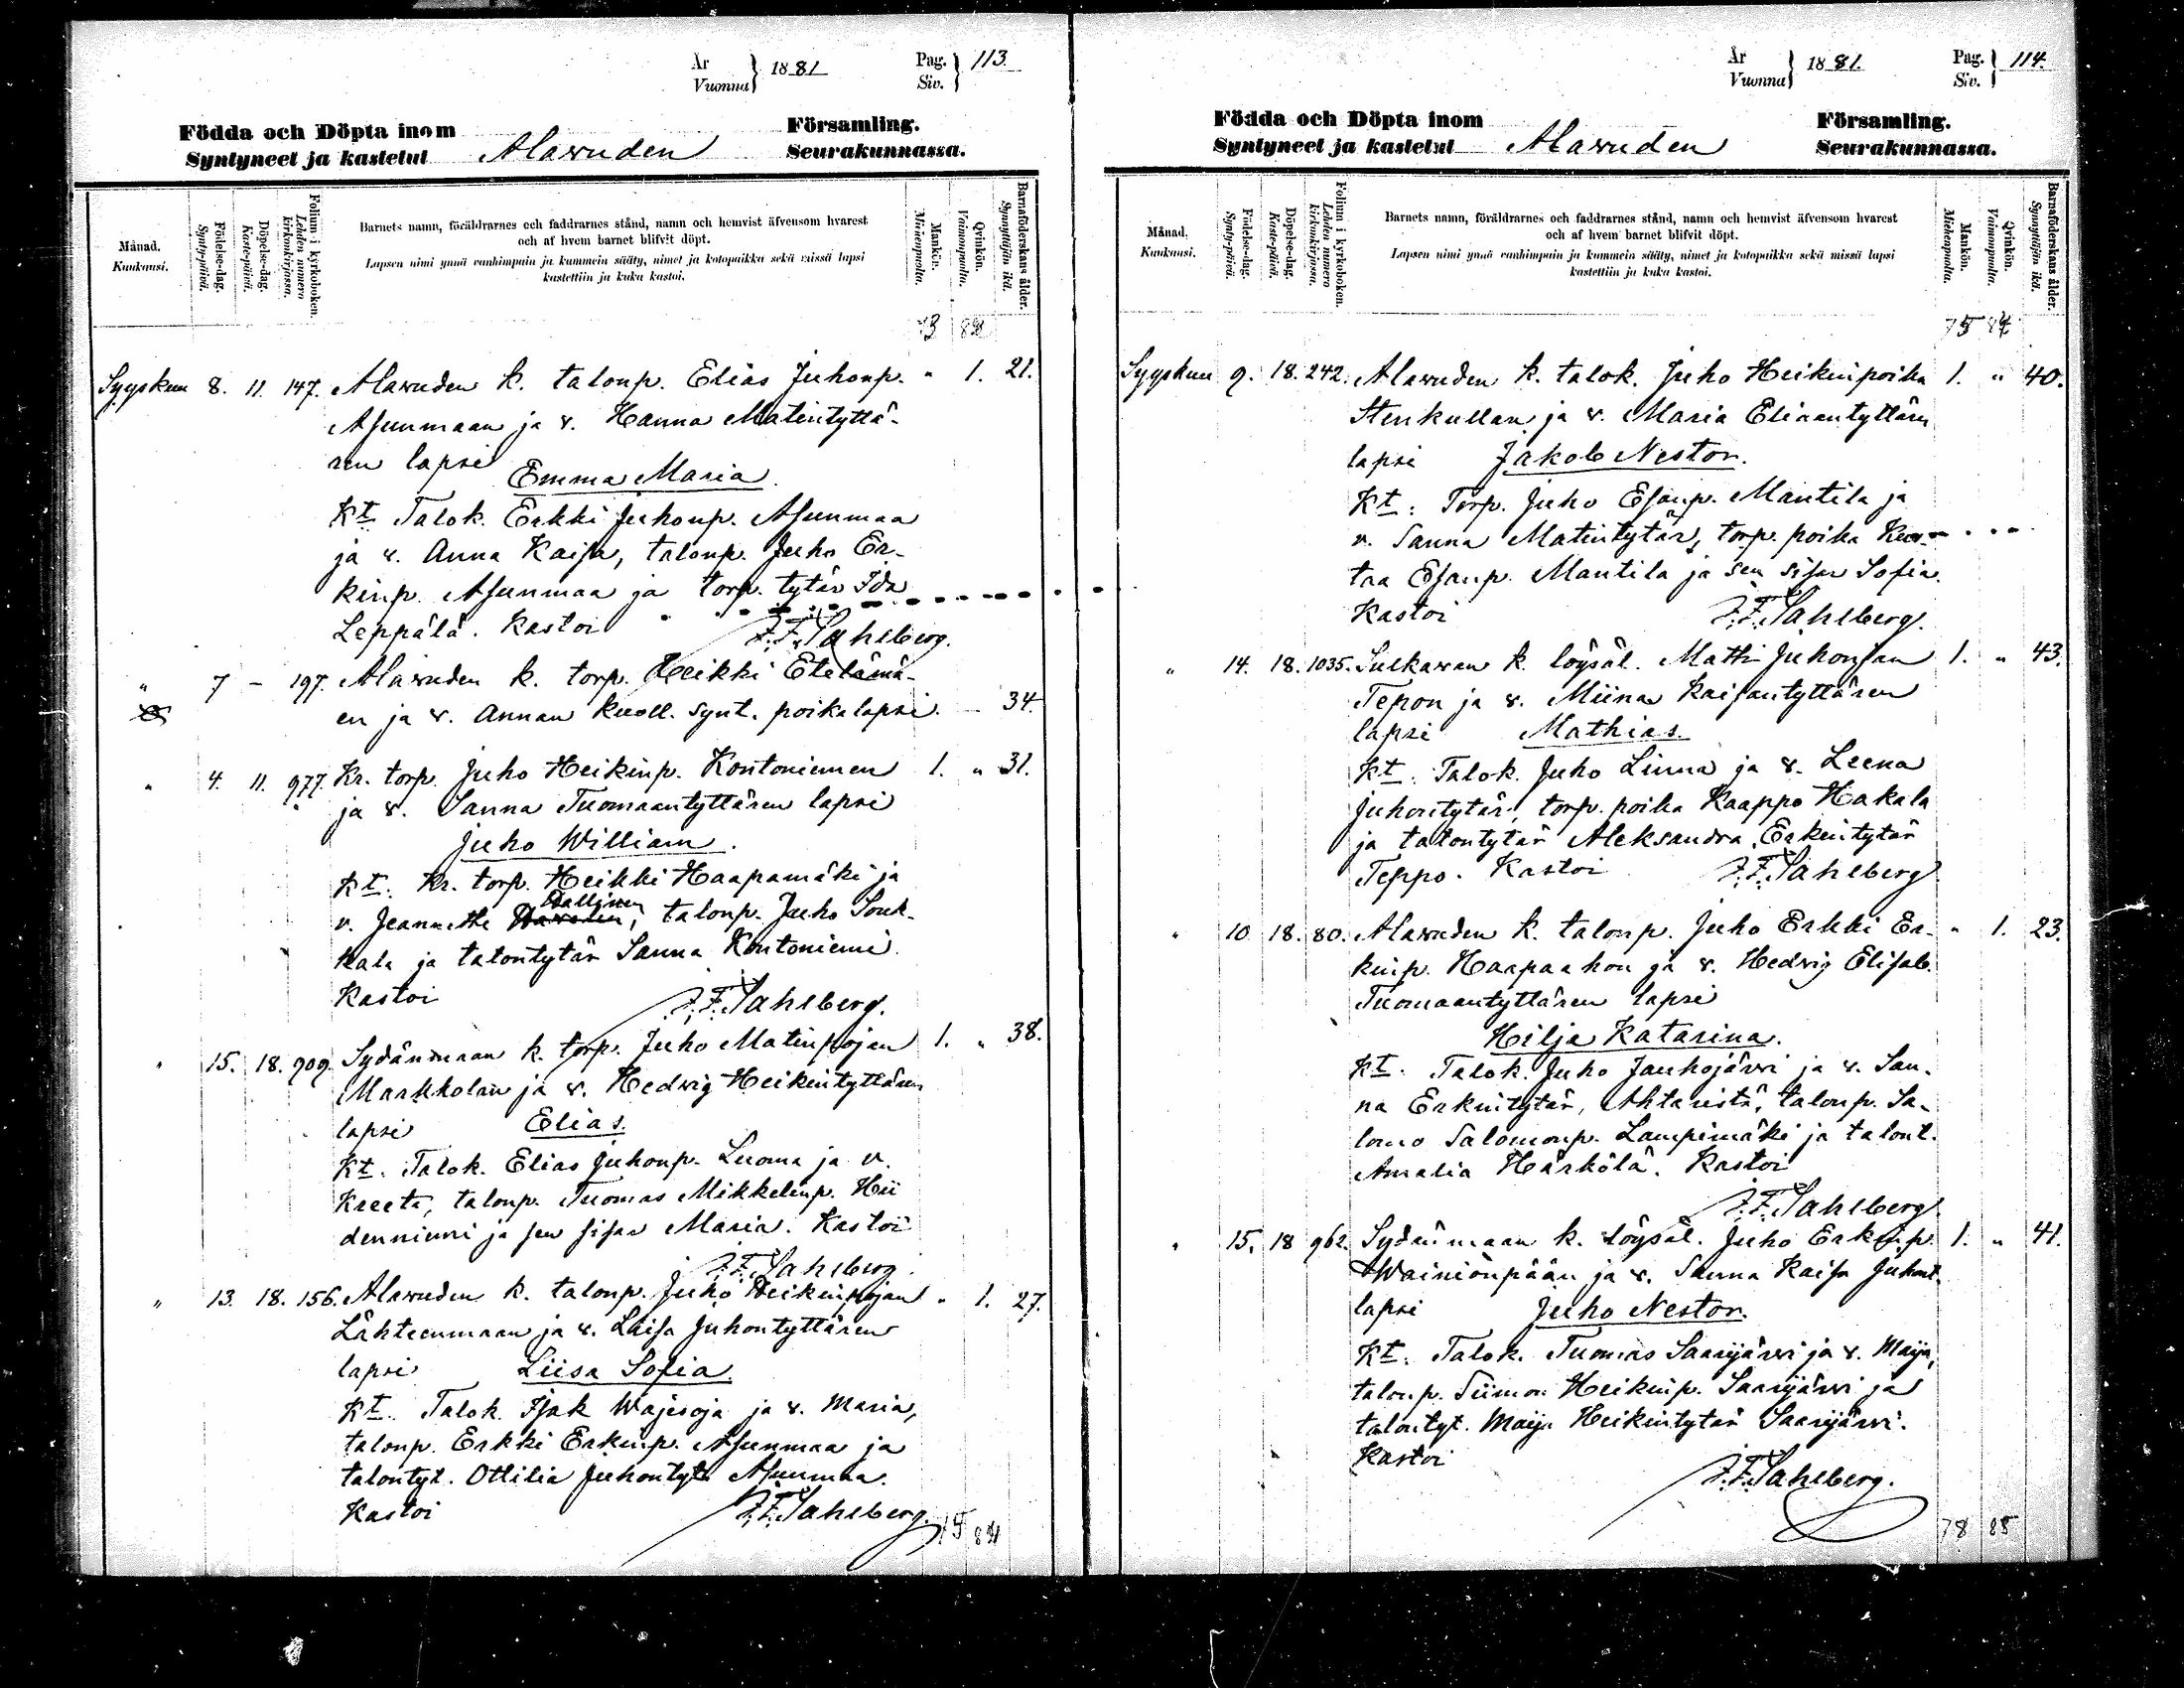 År
Vuonna } 1881
Pag.
Siv. } 113.
Födda och Döpta inom
Syntyneet ja kastetut Alavuden
Församling.
Seurakunnassa.
Månad.
Kuukausi.
Födelse-dag.
Synty-päivä.
Döpelse-dag.
Kaste-päivä.
Folium i kyrkoboken.
Lehden numero kirkonkirjassa.
Barnets namn, föräldrarnes och faddrarnes stånd, namn och hemvist äfvensom hvarest
och af hvem barnet blifvit döpt.
Lapsen nimi ynnä vanhimpain ja kummein sääty, nimet ja kotopaikka sekä missä lapsi
kastettiin ja kuka kastoi.
Mankön.
Miehenpuolta.
Qvinkön.
Vaimonpuolta.
Barnaföderskans ålder.
Synnyttäjän ikä.
Syyskuu 8. 11. 147. Alavuden k. talonp. Elias Juhonp. " 1. 21.
Asunmaan ja v. Hanna Matintyttä-
ren lapsi Emma Maria.
Kt. Talok. Erkki Juhonp. Asunmaa
ja v. Anna Kaisa, talonp. Juho Er-
kinp. Asunmaa ja torp. tytär Ida
Leppälä. Kastoi F. F. Sahlberg.
" 7 – 197. Alavuden k. torp. Heikki Etelämä-
en ja v. Annan kuoll. synt. poikalapsi. – 34.
" 4. 11. 977. Kr. torp. Juho Heikinp. Kontoniemen 1. " 31.
ja v. Sanna Tuomaantyttären lapsi
Juho William.
Kt. Kr. torp. Heikki Haapamäki ja
v. Jeannette Dallinen, talonp. Juho Souk-
kala ja talontytär Sanna Kontoniemi.
Kastoi F. F. Sahlberg.
" 15. 18. 909. Sydänmaan k. torp. Juho Matinpojan 1. " 38.
Markkolan ja v. Hedvig Heikintyttären
lapsi Elias.
Kt. Talok. Elias Juhonp. Luoma ja v.
Kreeta, talonp. Tuomas Mikkelinp. Hii
denniemi ja sen sisar Maria. Kastoi
F. F. Sahlberg.
" 13. 18. 156. Alavuden k. talonp. Juho Heikinpojan " 1. 27.
Lähteenmaan ja v. Laisa Juhontyttären
lapsi Liisa Sofia.
Kt. Talok. Isak Wajesoja ja v. Maria,
talonp. Erkki Erkinp. Asunmaa ja
talontyt. Ottilia Juhontyt. Asunmaa.
Kastoi F. F. Sahlberg.
År
Vuonna } 1881.
Pag.
Siv. } 114.
Födda och Döpta inom
Syntyneet ja kastetut Alavuden
Församling.
Seurakunnassa.
Månad.
Kuukausi.
Födelse-dag.
Synty-päivä.
Döpelse-dag.
Kaste-päivä.
Folium i kyrkoboken.
Lehden numero kirkonkirjassa.
Barnets namn, föräldrarnes och faddrarnes stånd, namn och hemvist äfvensom hvarest
och af hvem barnet blifvit döpt.
Lapsen nimi ynnä vanhimpain ja kummein sääty, nimet ja kotopaikka sekä missä lapsi
kastettiin ja kuka kastoi.
Mankön.
Miehenpuolta.
Qvinkön.
Vaimonpuolta.
Barnaföderskans ålder.
Synnyttäjän ikä.
Syyskuu 9. 18. 242. Alavuden k. talok. Juho Heikinpoika 1. " 40.
Stenkullan ja v. Maria Eliaantyttären
lapsi Jakob Nestor.
Kt. Torp. Juho Esaup. Mantila ja
v. Sanna Matintytär, torp. poika Kus-
taa Esaup. Mantila ja sen sisar Sofia.
Kastoi F. F. Sahlberg.
" 14. 18. 1035. Sulkavan k. löysäl. Matti Juhonpan 1. " 43.
Tepon ja v. Miina Kaisantyttären
lapsi Mathias.
Kt. Talok. Juho Linna ja v. Leena
Juhontytär, torp. poika Kaappo Hakala
ja talontytär Aleksandra Erkintytär
Teppo. Kastoi F. F. Sahlberg
" 10 18. 80. Alavuden k. talonp. Juho Erkki Er- " 1. 23.
kinp. Haapaahon ja v. Hedvig Elisab.
Tuomaantyttären lapsi
Hilja Katarina.
Kt. Talok. Juho Jauhojärvi ja v. San-
na Erkintytär, Ahtaristä, talonp. Sa-
lomo Salomonp. Lampimäki ja talont.
Amalia Härkölä. Kastoi
F. F. Sahlberg.
" 15. 18 962. Sydänmaan k. löysäl. Juho Erkinp. 1. " 41.
Wainiönpään ja v. Sanna Kaisa Juhont.
lapsi Juho Nestor.
Kt. Talok. Tuomas Saarijärvi ja v. Maija,
talonp. Siimon Heikinp. Saarijärvi ja
talontyt. Maija Heikintytär Saarijärvi.
Kastoi F. F. Sahlberg.
78 85